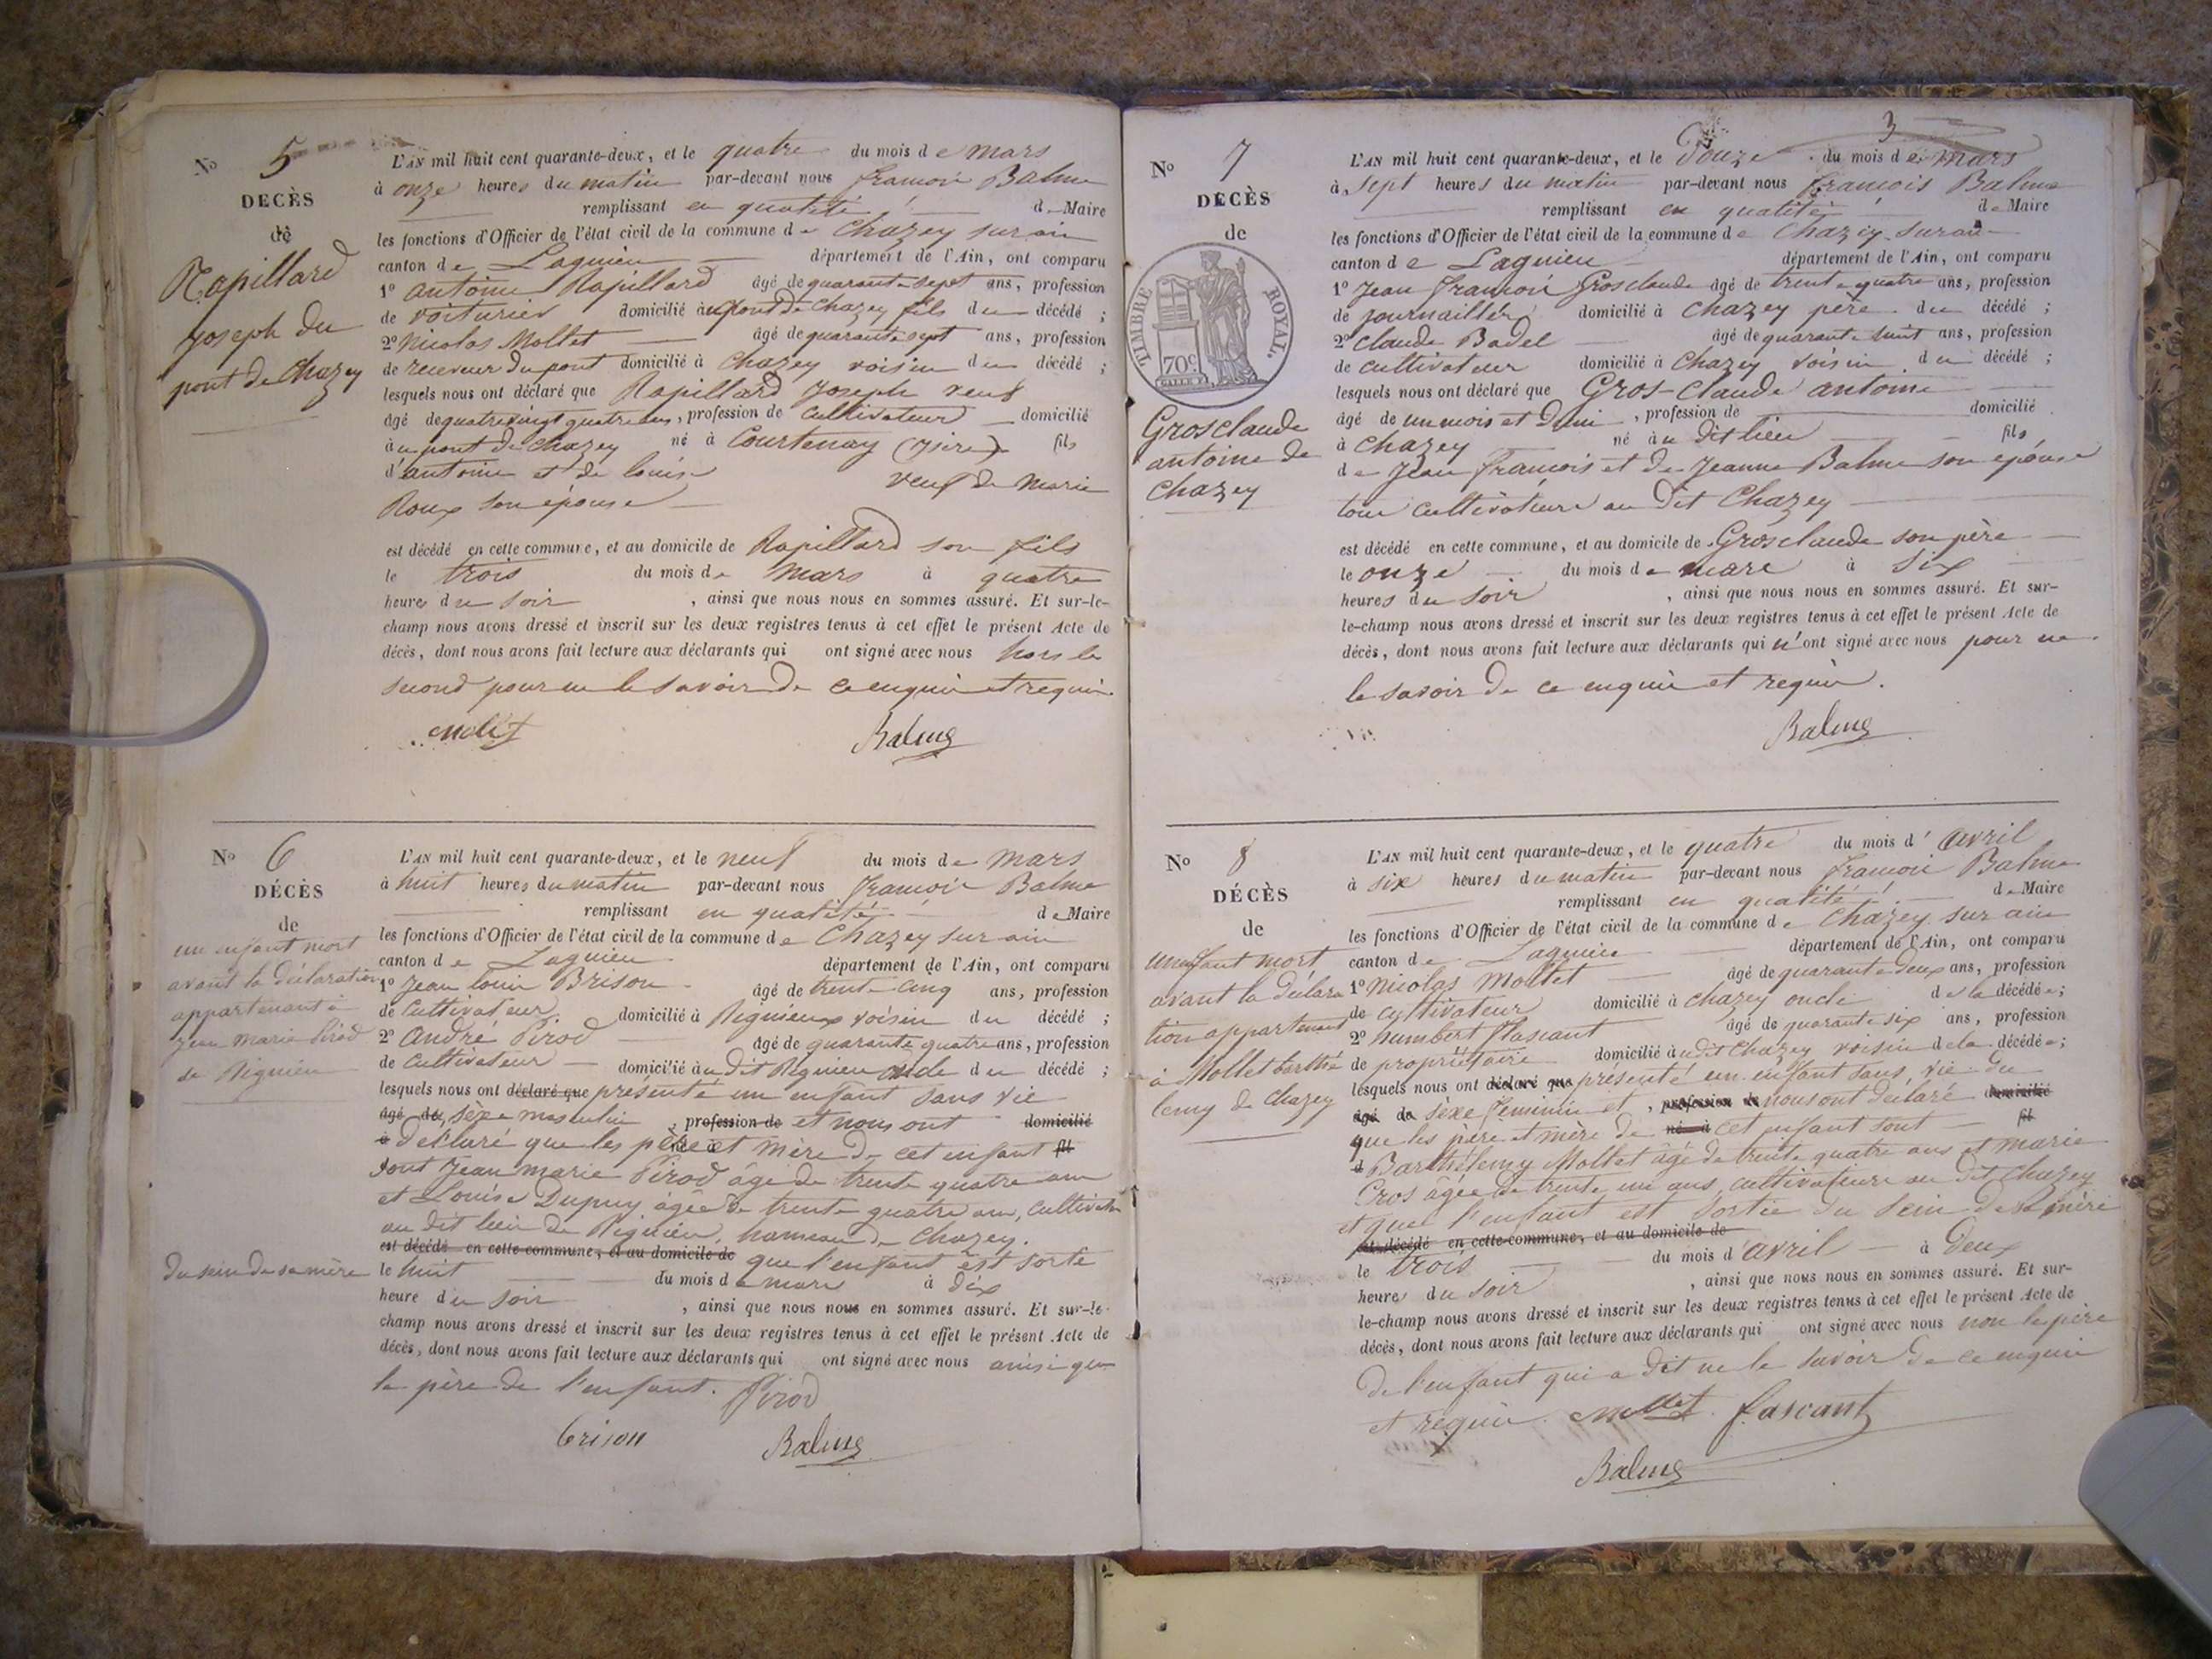 No 5
DECÈS
de
Rapillard
joseph du
pont de Chazey
L'AN mil huit cent quarante-deux, et le quatre du mois de mars
à onze heures du matin par-devant nous françois Balme
remplissant en qualité de Maire
les fonctions d'Officier de l'état civil de la commune de Chazey sur ain
canton de Lagnieu département de l'Ain, ont comparu
1o antoine Rapillard âgé de quarante sept ans, profession
de voiturier domicilié au pont de Chazey fils du décédé ;
2o Nicolas Mollet âgé de quarante sept ans, profession
de receveur du pont domicilié à Chazey voisin du décédé ;
lesquels nous ont déclaré que Rapillard Joseph veuf
âgé de quatre vingt quatre ans, profession de cultivateur domicilié
au pont de chazey né à Courtenay (Isère) fils
d'antoine et de louise veuf de Marie
Roux son épouse
est décédé en cette commune, et au domicile de Rapillard son fils
le trois du mois de mars à quatre
heures du soir , ainsi que nous nous en sommes assuré. Et sur-le-
champ nous avons dressé et inscrit sur les deux registres tenus à cet effet le présent Acte de
décès, dont nous avons fait lecture aux déclarants qui ont signé avec nous hors le
second pour ne le savoir de ce enquis et requis.
Balme
No 6
DÉCÈS
de
un enfant mort
avant la déclaration
appartenant à
jean marie Pirod
de Rignieu
L'AN mil huit cent quarante-deux, et le neuf du mois de mars
à huit heures du matin par-devant nous françois Balme
remplissant en qualité de Maire
les fonctions d'Officier de l'état civil de la commune de Chazey sur ain
canton de Lagnieu département de l'Ain, ont comparu
1o Jean louis Brison âgé de trente cinq ans, profession
de cultivateur domicilié à Rignieux voisin du décédé ;
2o André Pirod âgé de quarante quatre ans, profession
de cultivateur domicilié au dit Rignieu oncle du décédé ;
lesquels nous ont déclaré que présenté un enfant sans vie
âgé de, sèxe masculin , profession de et nous ont domicilié
à déclaré que les père et mère de cet enfant fil
sont Jean marie Pirod âgé de trente quatre ans
et Louise Dupuy âgée de trente quatre ans, cultivat.
au dit lieu de Rignieu, hameau de Chazey.
est décédé en cette commune, et au domicile de que l'enfant est sorti
du sein de sa mère le huit du mois de mars à dix
heure du soir , ainsi que nous nous en sommes assuré. Et sur-le-
champ nous avons dressé et inscrit sur les deux registres tenus à cet effet le présent Acte de
décès, dont nous avons fait lecture aux déclarants qui ont signé avec nous ainsi que
le père de l'enfant. Pirod
brison Balme
3
No 7
DÉCÈS
de
TIMBRE ROYAL.
70c
Grosclaude
antoine de
Chazey
L'AN mil huit cent quarante-deux, et le Douze du mois de mars
à sept heures du matin par-devant nous françois Balme
remplissant en qualité de Maire
les fonctions d'Officier de l'état civil de la commune de Chazey sur ain
canton de Lagnieu département de l'Ain, ont comparu
1o Jean françois Grosclaude âgé de trente quatre ans, profession
de journaillier domicilié à Chazey père du décédé ;
2o Claude Badel âgé de quarante huit ans, profession
de cultivateur domicilié à Chazey voisin du décédé ;
lesquels nous ont déclaré que Gros-claude antoine
âgé de un mois et demi , profession de domicilié
à Chazey né au dit lieu fils
de Jean françois et de Jeanne Balme son épouse
tous cultivateurs au dit Chazey
est décédé en cette commune, et au domicile de Grosclaude son père
le onze du mois de mars à six
heures du soir , ainsi que nous nous en sommes assuré. Et sur-
le-champ nous avons dressé et inscrit sur les deux registres tenus à cet effet le présent Acte de
décès, dont nous avons fait lecture aux déclarants qui n'ont signé avec nous pour ne
le savoir de ce enquis et requis.
Balme
No 8
DÉCÈS
de
un enfant mort
avant la déclara
tion appartenant
à Mollet barthé
lemy de Chazey
L'AN mil huit cent quarante-deux, et le quatre du mois d'avril
à six heures du matin par-devant nous françois Balme
remplissant en qualité de Maire
les fonctions d'Officier de l'état civil de la commune de Chazey sur ain
canton de Lagnieu département de l'Ain, ont comparu
1o Nicolas Mollet âgé de quarante deux ans, profession
de cultivateur domicilié à Chazey oncle de la décédée ;
2o humbert flascant âgé de quarante six ans, profession
de propriétaire domicilié au dit Chazey voisin de la décédée ;
lesquels nous ont déclaré que présenté un enfant sans vie du
âgé de sèxe féminin et , profession de nous ont déclaré domicilié
que les père et mère de né à cet enfant sont fil
d Barthélemy Mollet âgé de trente quatre ans et marie
Gros âgée de trente un ans, cultivateurs au dit Chazey
et que l'enfant est sortie du sein de sa mère
est décédé en cette commune, et au domicile de
le trois du mois d'avril à deux
heures du soir , ainsi que nous nous en sommes assuré. Et sur-
le-champ nous avons dressé et inscrit sur les deux registres tenus à cet effet le présent Acte de
décès, dont nous avons fait lecture aux déclarants qui ont signé avec nous non le père
de l'enfant qui a dit ne le savoir de ce enquis
et requis. mollet fascant
Balme